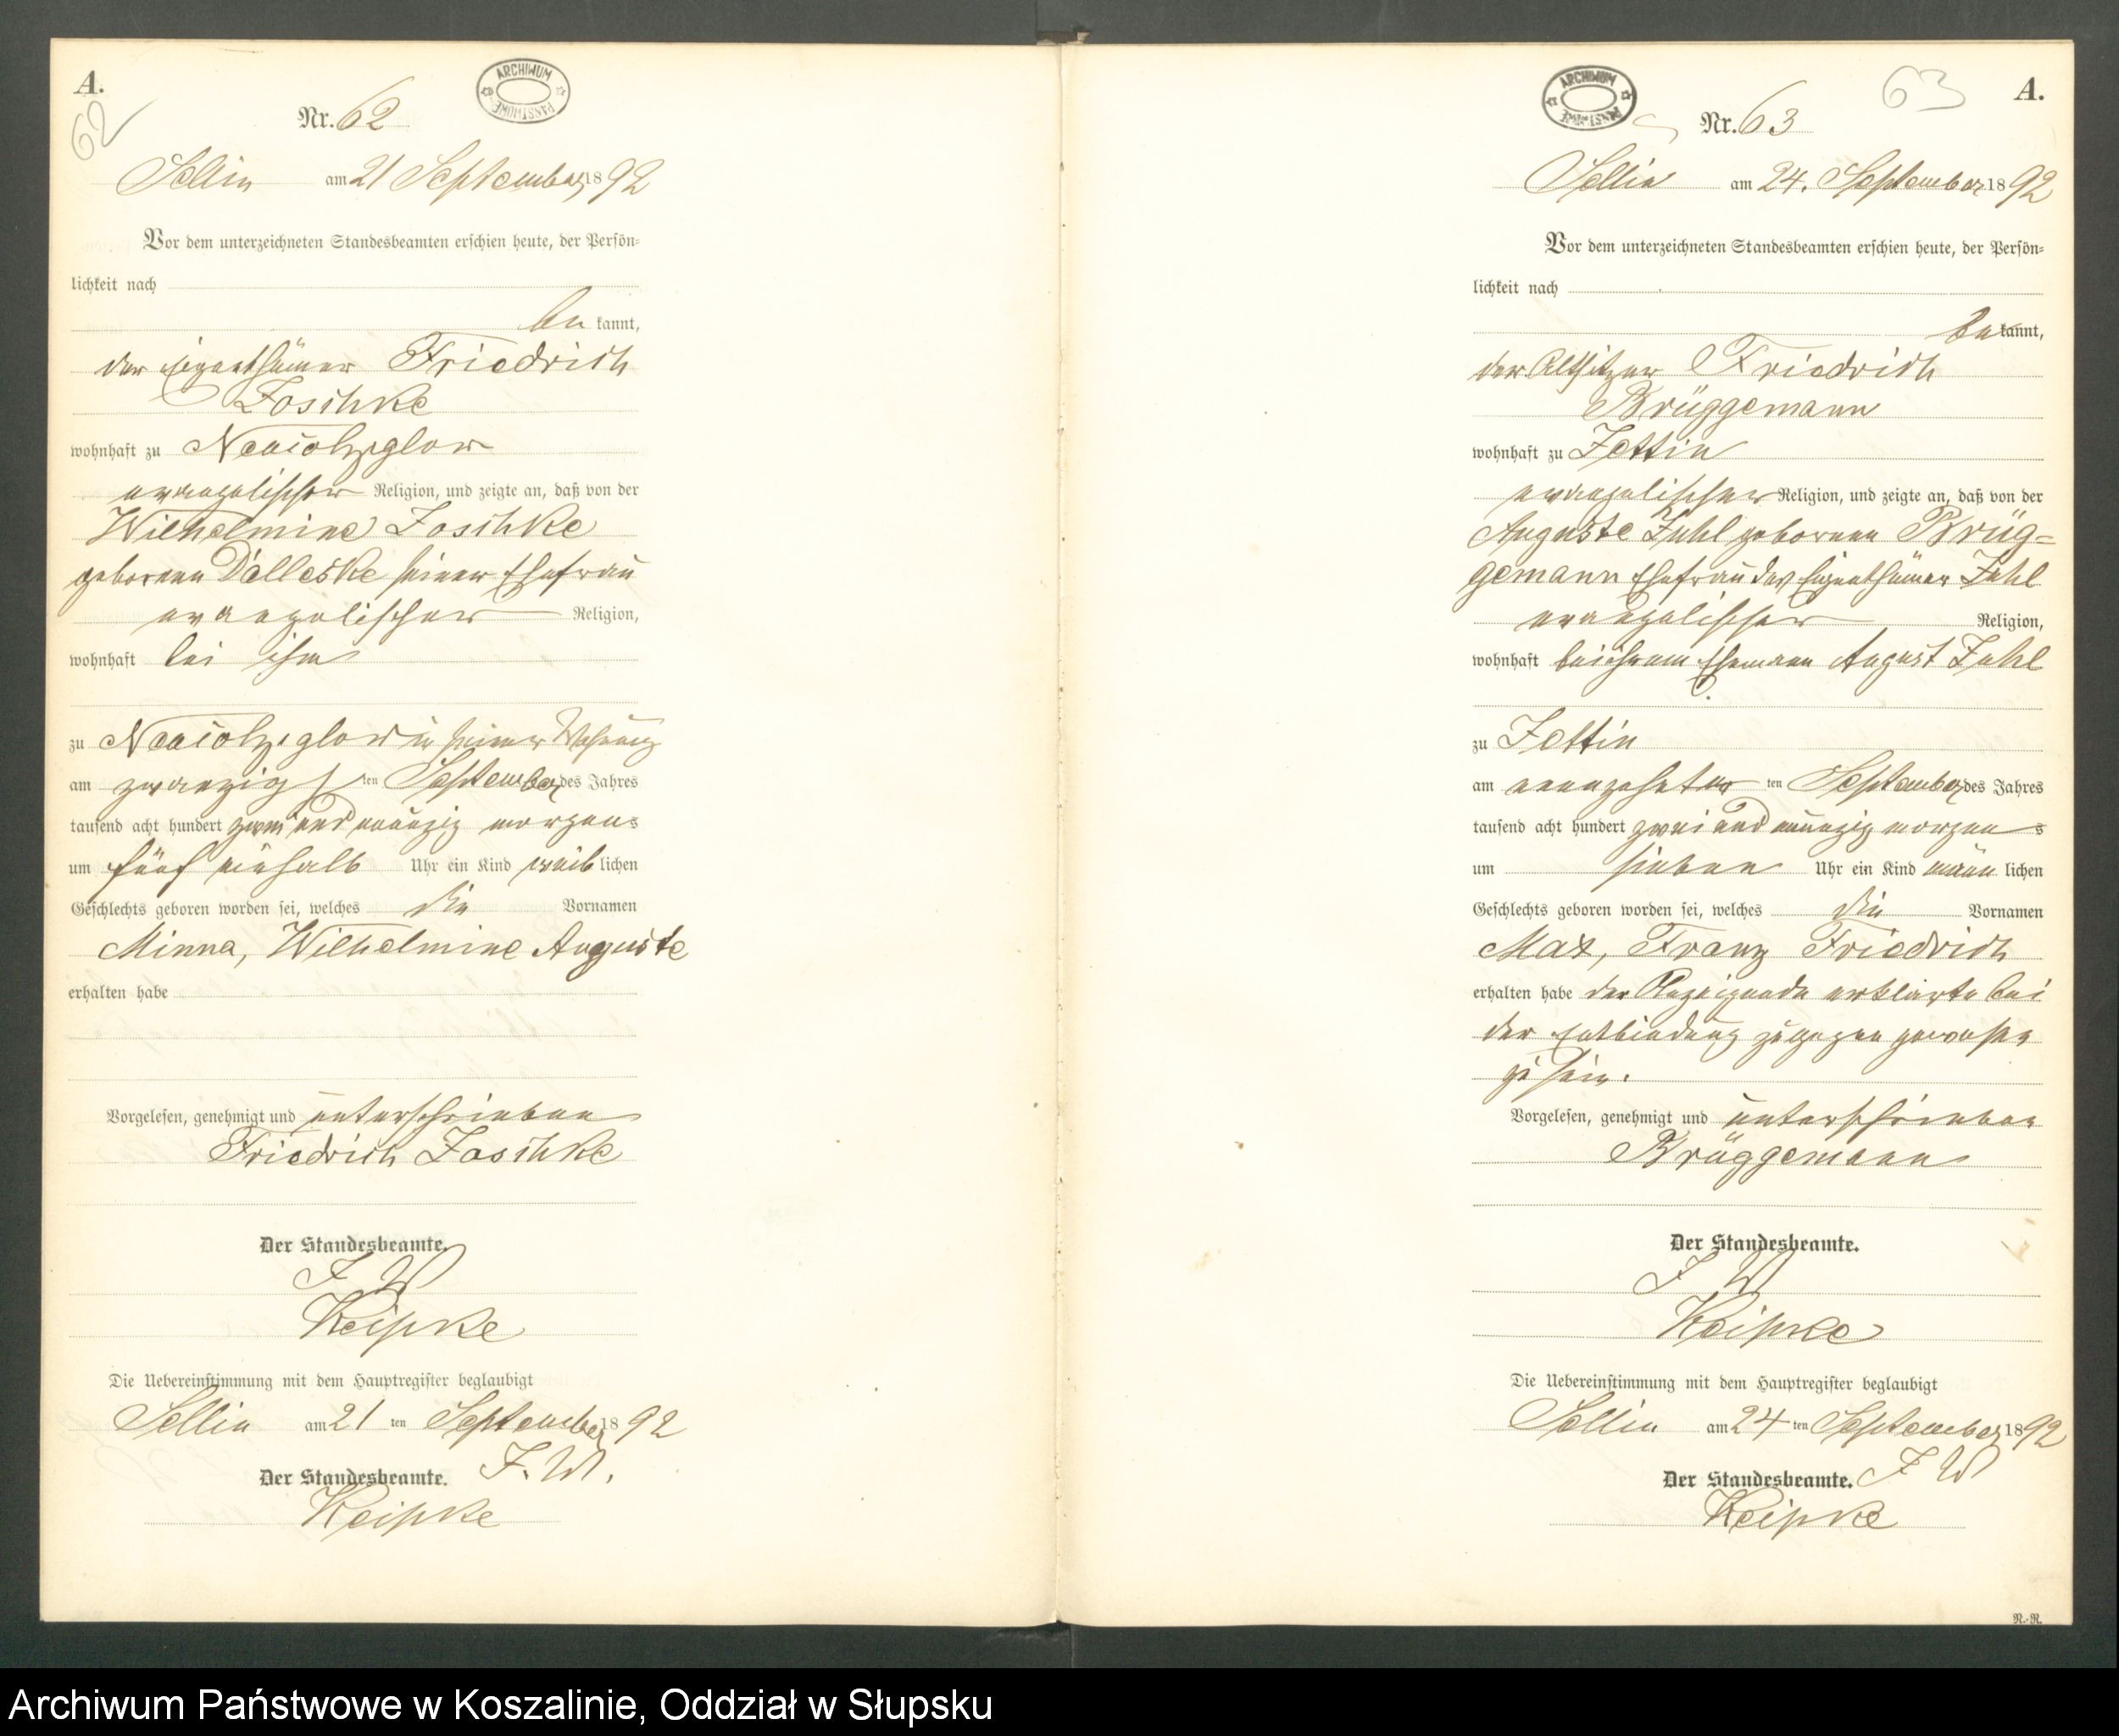 A.
62
ARCHIWUM PAŃSTWOWE
Nr. 62
Sellin am 21 September 1892
Vor dem unterzeichneten Standesbeamten erschien heute, der Persön=
lichkeit nach
be kannt,
der Eigenthümer Friedrich
Joschke
wohnhaft zu Neukolziglow
evangelischer Religion, und zeigte an, daß von der
Wilhelmine Joschke
geborenen Delleske seiner Ehefrau
evangelischer Religion,
wohnhaft bei ihm
zu Neukolziglow in seiner Wohnung
am zwanzigsten September des Jahres
tausend acht hundert zwei und neunzig morgens
um fünf einhalb Uhr ein Kind weiblichen
Geschlechts geboren worden sei, welches die Vornamen
Minna, Wilhelmine Auguste
erhalten habe
Vorgelesen, genehmigt und unterschrieben
Friedrich Joschke
Der Standesbeamte.
J W
Keipke
Die Uebereinstimmung mit dem Hauptregister beglaubigt
Sellin am 21 ten September 1892
Der Standesbeamte. J. W.
Keipke
ARCHIWUM PAŃSTWOWE
63
A.
Nr. 63
Sellin am 24. September 1892
Vor dem unterzeichneten Standesbeamten erschien heute, der Persön=
lichkeit nach
be kannt,
der Altsitzer Friedrich
Brüggemann
wohnhaft zu Zettin
evangelischer Religion, und zeigte an, daß von der
Auguste Zuhl geborenen Brüg=
gemann Ehefrau des Eigenthümer Zuhl
evangelischer Religion,
wohnhaft bei ihrem Ehemann August Zuhl
zu Zettin
am neunzehnten ten September des Jahres
tausend acht hundert zwei und neunzig morgens
um sieben Uhr ein Kind männlichen
Geschlechts geboren worden sei, welches die Vornamen
Max, Franz Friedrich
erhalten habe der Anzeigende erklärte bei
der Entbindung zugegen gewesen
zu sein.
Vorgelesen, genehmigt und unterschrieben
Brüggemann
Der Standesbeamte.
J W
Keipke
Die Uebereinstimmung mit dem Hauptregister beglaubigt
Sellin am 24 ten September 1892
Der Standesbeamte. J W
Keipke
R.-R.
Archiwum Państwowe w Koszalinie, Oddział w Słupsku